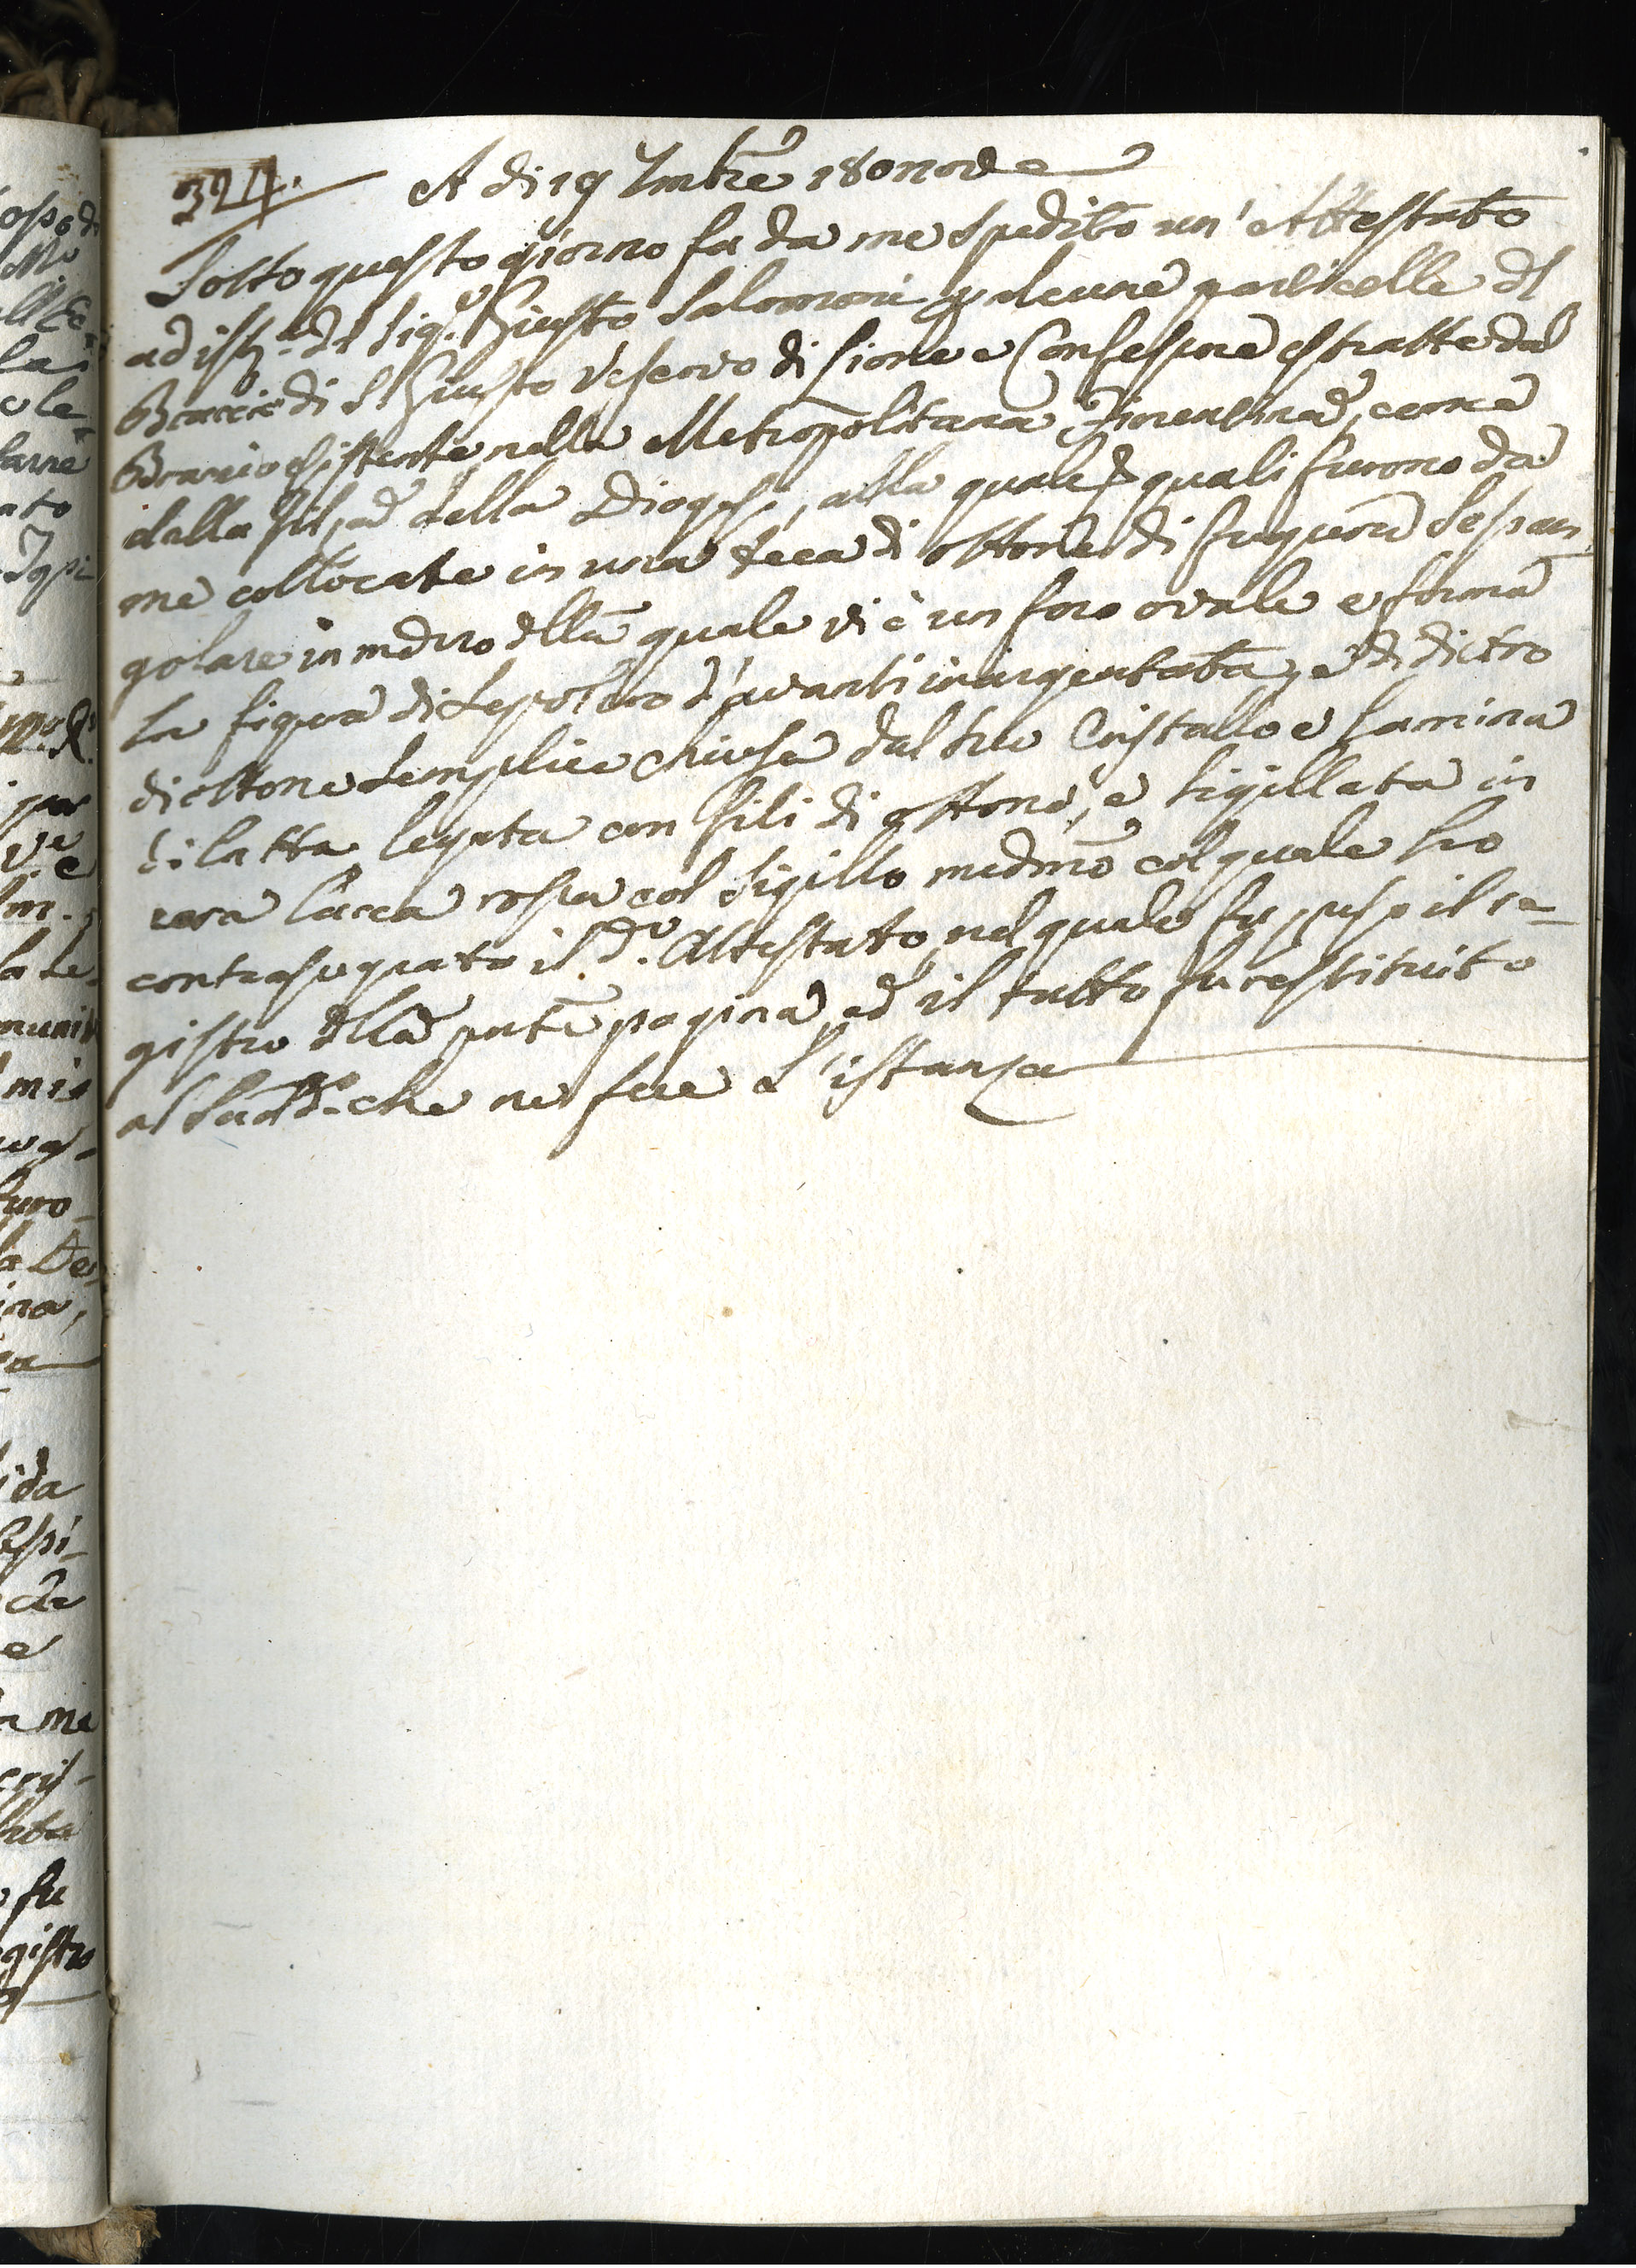 324. A di 19 7mbre 180nove
Sotto questo giorno fu da me spedito un' Attestato
ad istza. dl Sigr. Giusto Salomoni p alcune particelle dl
Braccio di S. Giusto Vescovo di Lione e Confessore estratte dal
Braccio esistente nella Metropolitana Fiorentina, come
dalla della Diogesi, alla quale quali furono da
me collocate in una Teca di ottone di figura
golare in mezzo dlla quale vi è un foro ovale e forma
la figura di Sepolcro d'avanti inargentata, e di dietro
di ottone semplice chiusa dal suo Cristallo e Lamina
di latta, legata con fili di ottone, e sigillata in
cera lacca rossa col sigillo medmo col quale ho
contrasegnato il do. Attestato, nel quale fu posto il re=
gistro dlla pnte pagina, ed il tutto fu restituito
al Sudo. che ne fece l'istanza